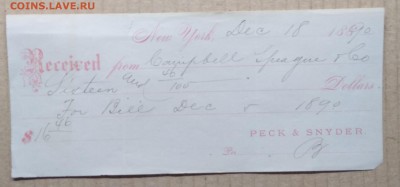 COINS.LAVE.RU
New York, Dec 18 1890
Received from Campbell Sprague & Co
Sixteen and 30/100 Dollars.
For Bill Dec 1890
$16
PECK & SNYDER,